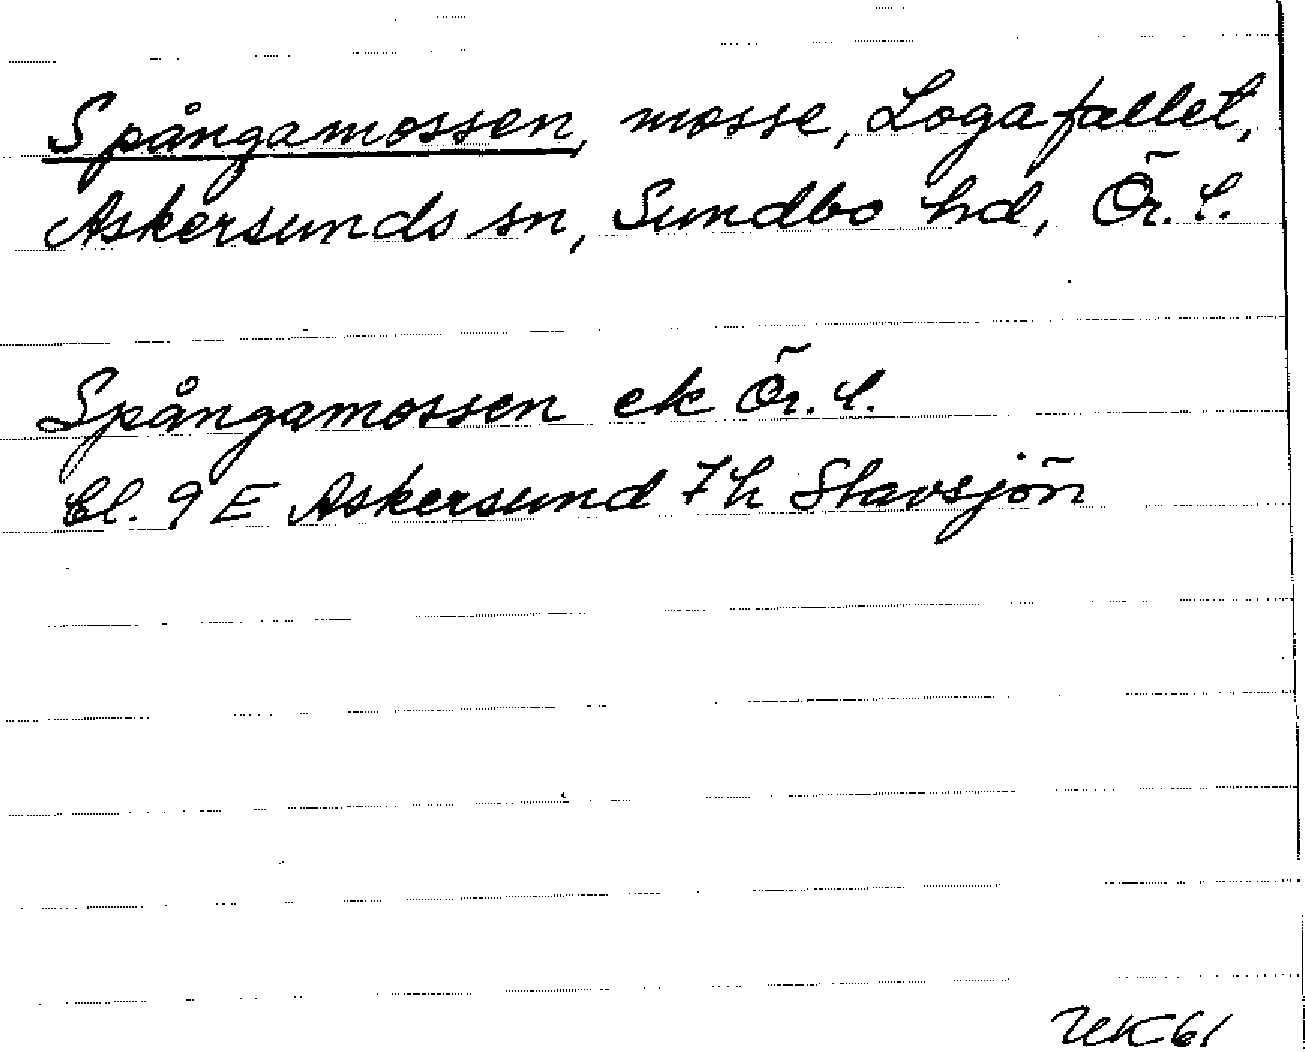 Spångamossen, mosse, Logafallet,
Askersunds sn, Sundbo hd, Ör. l.
Spångamossen ek Ör. l.
bl. 9 E Askersund 7 h Stavsjön
UK 61